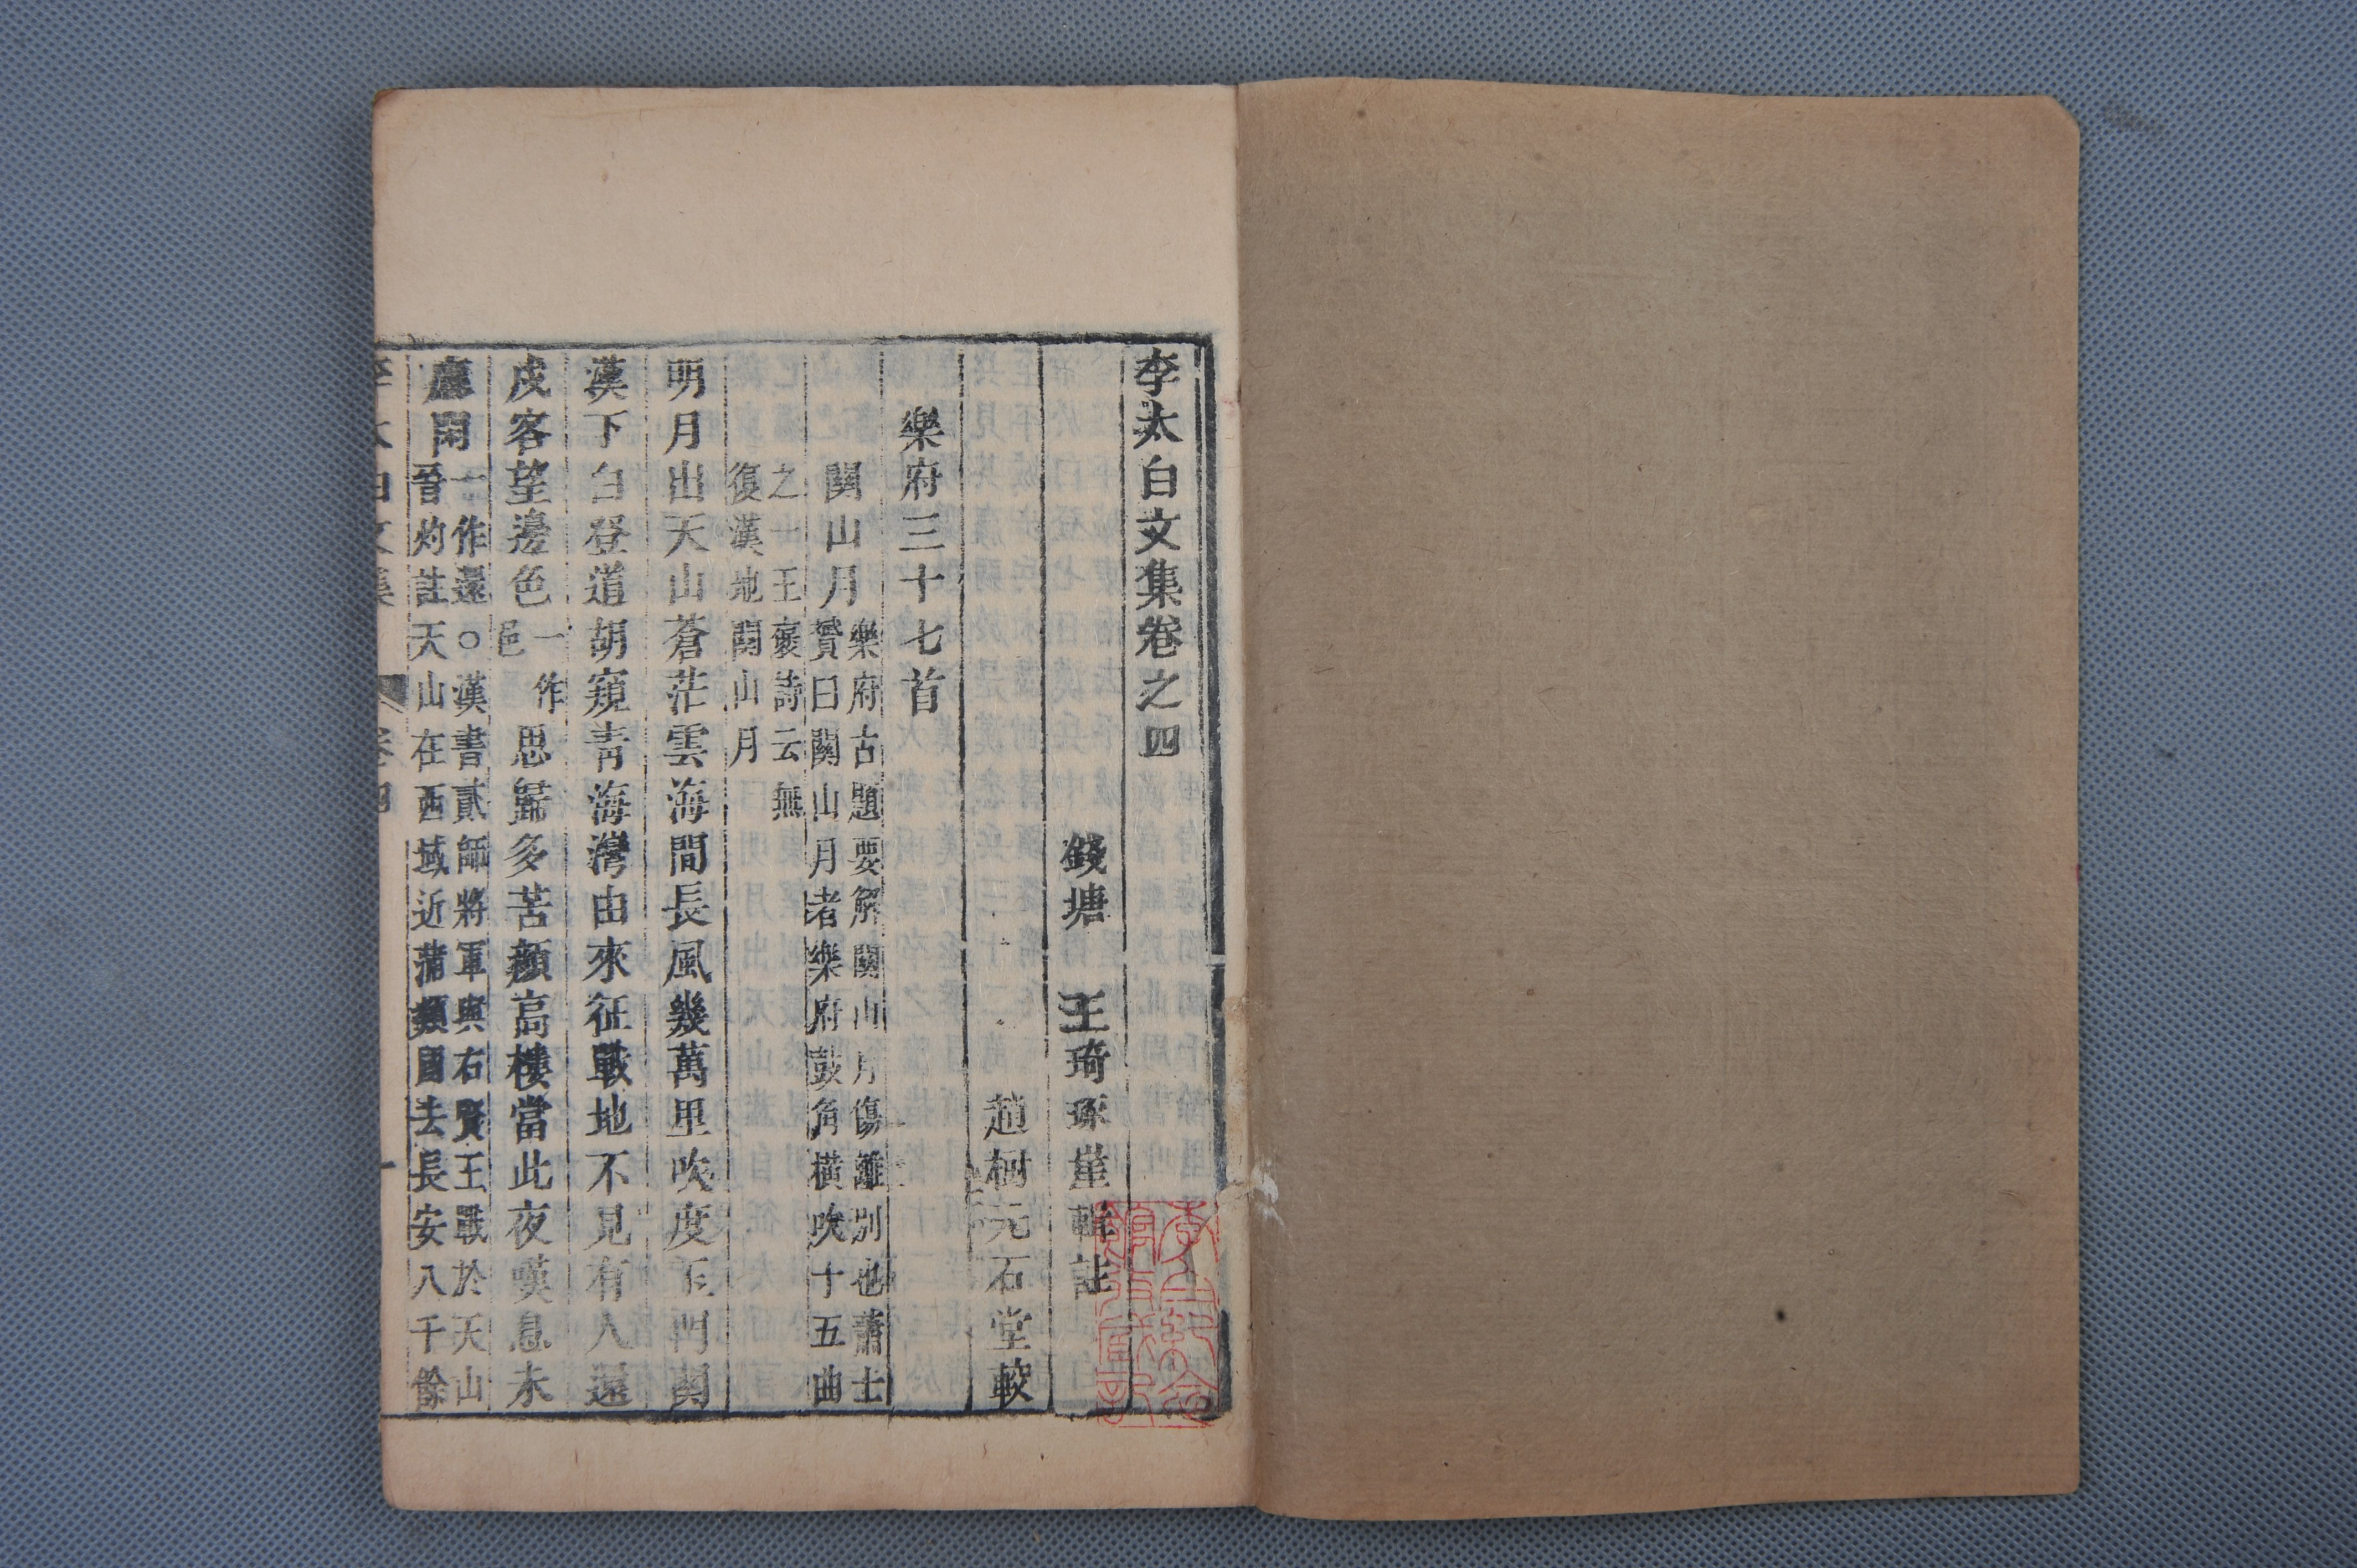 李太白文集卷之四
錢塘 王琦琢崖輯註
趙樹元石堂較
樂府三十七首
關山月 樂府古題要解關山月傷離別也蕭士
贇曰關山月者樂府鼓角橫吹十五曲
之一王褒詩云無
復漢地關山月
明月出天山蒼茫雲海間長風幾萬里吹度玉門關
漢下白登道胡窺青海灣由來征戰地不見有人還
戍客望邊色 一作
邑 思歸多苦顏高樓當此夜嘆息未
應閑 一作還○漢書貳師將軍與右賢王戰於天山
晉灼註天山在西域近蒲類國去長安八千餘
李太白文集 卷四 一